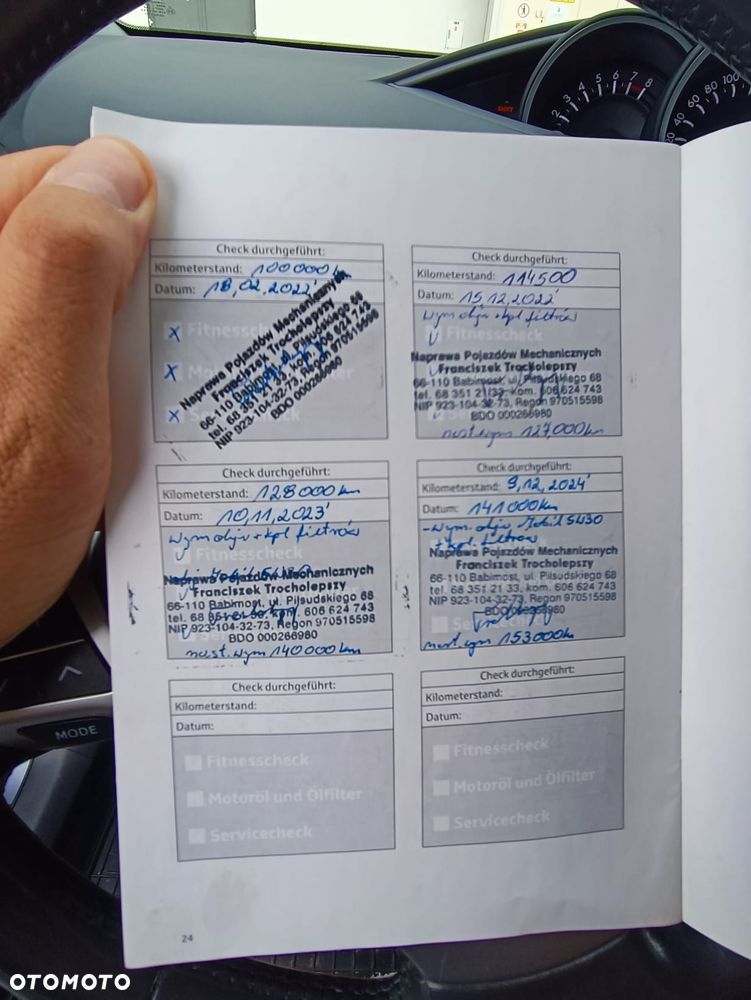 Check durchgeführt:
Kilometerstand: 100000 km
Datum: 18,02,2022'
Fitnesscheck
Naprawa Pojazdów Mechanicznych
Franciszek Trocholepszy
66-110 Babimost, ul. Piłsudskiego 68
tel. 68 351 21 33, kom. 606 624 743
NIP 923-104-32-73, Regon 970515598
BDO 000266980
Check durchgeführt:
Kilometerstand: 114500
Datum: 15,12,2022'
wym oleju + kpl filtrów
Naprawa Pojazdów Mechanicznych
Franciszek Trocholepszy
66-110 Babimost, ul. Piłsudskiego 68
tel. 68 351 21 33, kom. 606 624 743
NIP 923-104-32-73, Regon 970515598
BDO 000266980
nast. wym 127,000 km
Check durchgeführt:
Kilometerstand: 128000 km
Datum: 10,11,2023'
wym oleju + kpl filtrów
Fitnesscheck
Naprawa Pojazdów Mechanicznych
Franciszek Trocholepszy
66-110 Babimost, ul. Piłsudskiego 68
tel. 68 351 21 33, kom. 606 624 743
NIP 923-104-32-73, Regon 970515598
BDO 000266980
nast. wym 140000 km
Check durchgeführt:
Kilometerstand: 9,12,2024'
Datum: 141000 km
- wym. oleju Mobil 5W30
+ kpl. filtrów
Naprawa Pojazdów Mechanicznych
Franciszek Trocholepszy
66-110 Babimost, ul. Piłsudskiego 68
tel. 68 351 21 33, kom. 606 624 743
NIP 923-104-32-73, Regon 970515598
BDO 000266980
nast. wym 153000 km
Check durchgeführt:
Kilometerstand:
Datum:
Fitnesscheck
Motoröl und Ölfilter
Servicecheck
Check durchgeführt:
Kilometerstand:
Datum:
Fitnesscheck
Motoröl und Ölfilter
Servicecheck
24
MODE
2 3 4 5 6 7 8
60 80 100
OTOMOTO